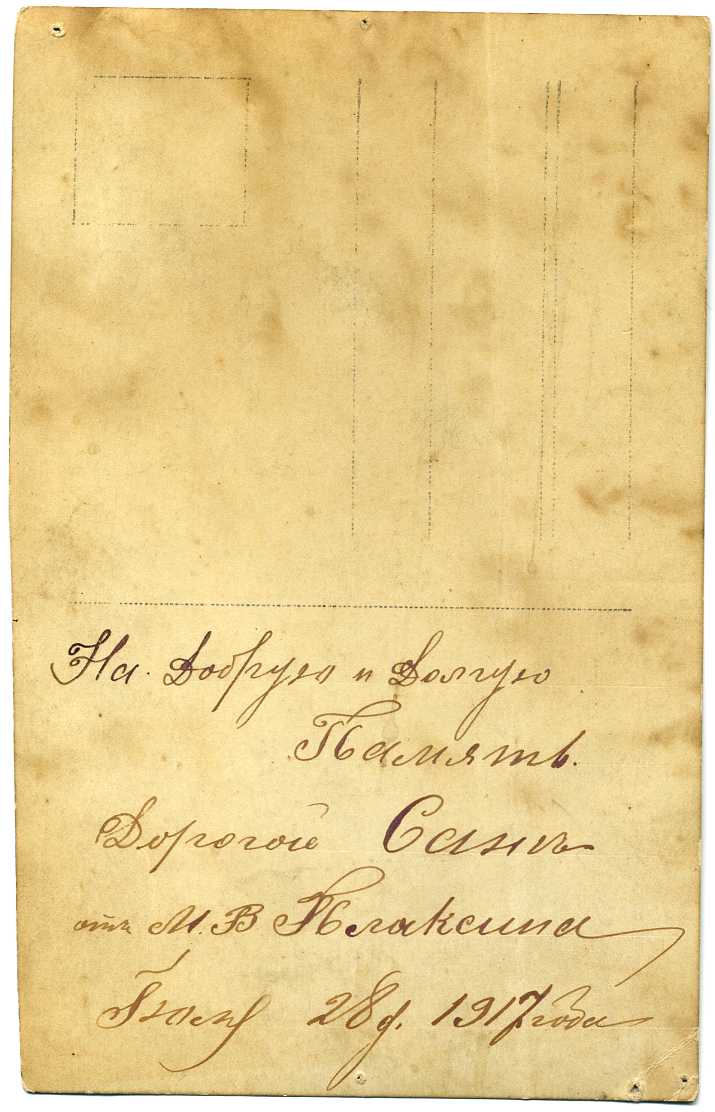 На Добрую и Долгую
Память.
Дорогой Санѣ
отъ М. В Плаксина
Іюля 28 д. 1917 года